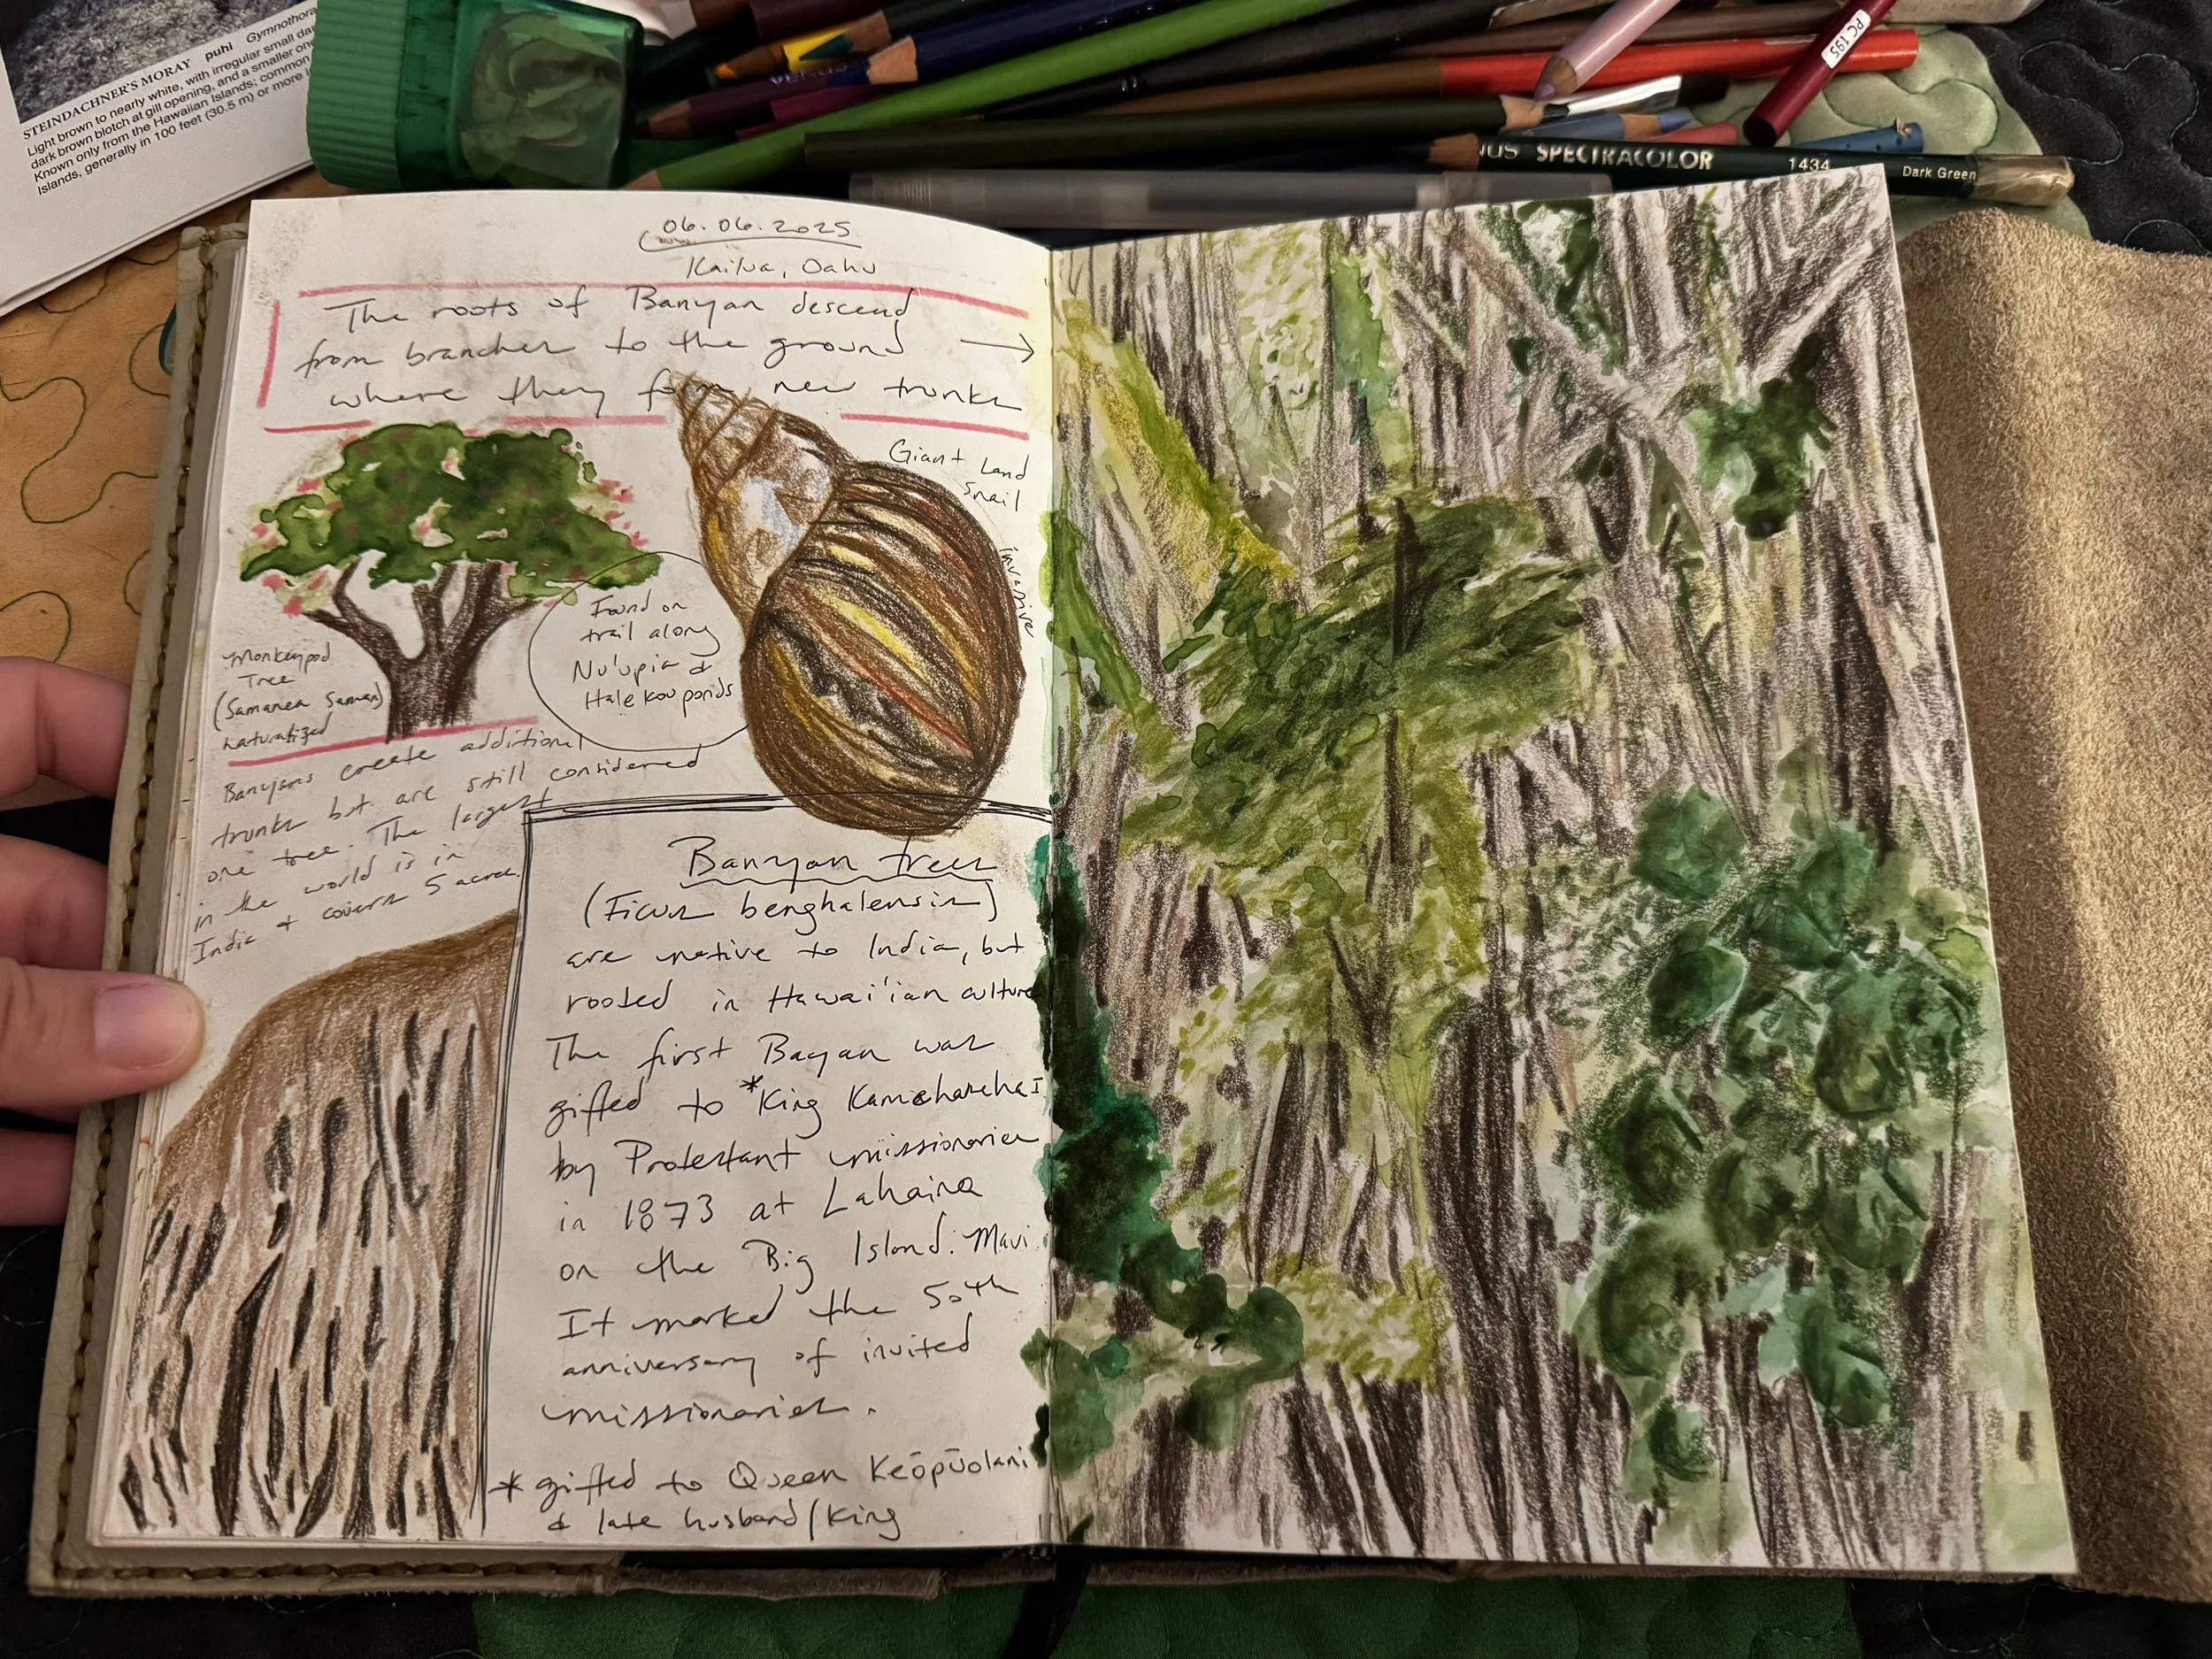 STEINDACHNER'S MORAY puhi Gymnothora
Light brown to nearly white, with irregular small da
dark brown blotch at gill opening, and a smaller on
Known only from the Hawaiian Islands; common
Islands, generally in 100 feet (30.5 m) or more
PC 195
SPECTRACOLOR 1434 Dark Green
06.06.2025
Kailua, Oahu
The roots of Banyan descend
from branches to the ground →
where they form new trunks
Giant Land
Snail
invasive
Found on
trail along
Nu'upia &
Hale kou ponds
Monkeypod
Tree
(Samanea Saman)
naturalized
Banyans create additional
trunks but are still considered
one tree. The largest
in the world is in
India & covers 5 acres.
Banyan trees
(Ficus benghalensis)
are native to India, but
rooted in Hawai'ian culture
The first Bayan was
gifted to *King Kamehameha I
by Protestant missionaries
in 1873 at Lahaina
on the Big Island. Maui.
It marked the 50th
anniversary of invited
missionaries.
* gifted to Queen Keōpūolani
& late husband/King